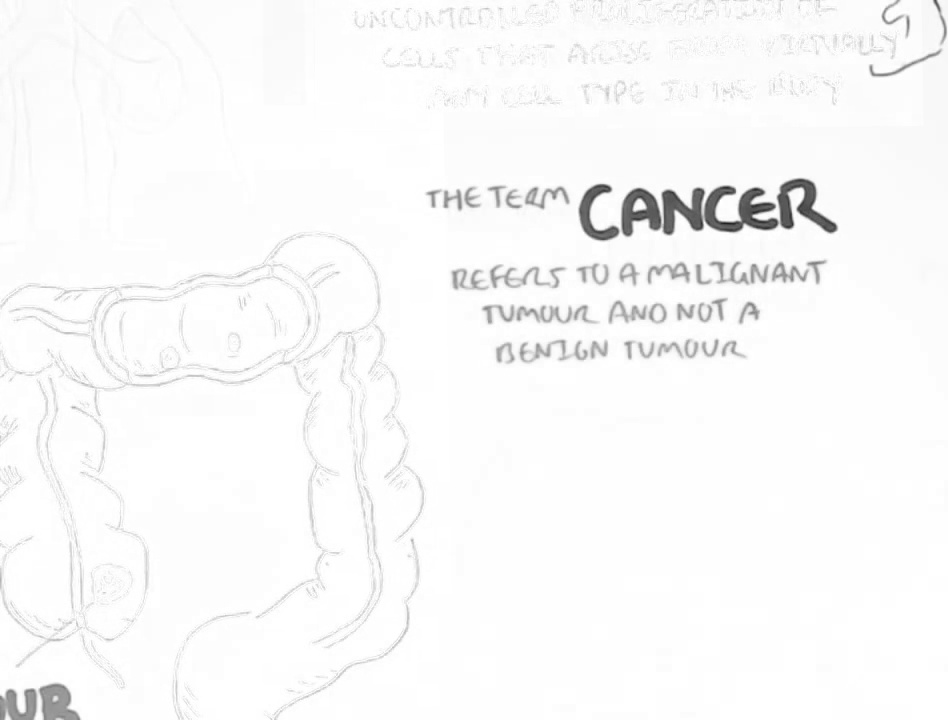 UNCONTROLLED PROLIFERATION OF
CELLS THAT ARISE FROM VIRTUALLY
ANY CELL TYPE IN THE BODY
THE TERM CANCER
REFERS TO A MALIGNANT
TUMOUR AND NOT A
BENIGN TUMOUR
OUR